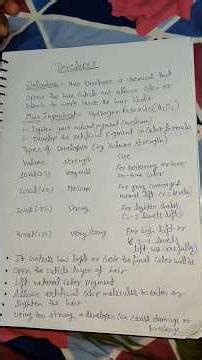 Developer
Definition:- Hair Developer a chemical that
opens the hair cuticle and allows color or
bleach to work inside the hair shaft.
Main Ingredient:- Hydrogen Peroxide (H2O2)
- Lighten your natural pigment (melanin)
- Develop the artificial pigment in color formulas
Types of Developer (by Volume strength)
Volume strength Use
10vol (3%) Very mild For
tone-on-tone color
20vol (6%) Medium For grey coverage
normal lift (1-2 levels)
30vol (9%) Strong For lighter shades
(2-3 levels lift)
40vol (12%) Very strong For high lift or
3-4 levels
lift (use carefully)
• It controls how light or dark the final color will be
• Opens the cuticle layer of hair
• Lift natural color pigment
• Allows artificial color molecules to enter or
lighten the hair
• Using too strong a developer can cause damage or
breakage